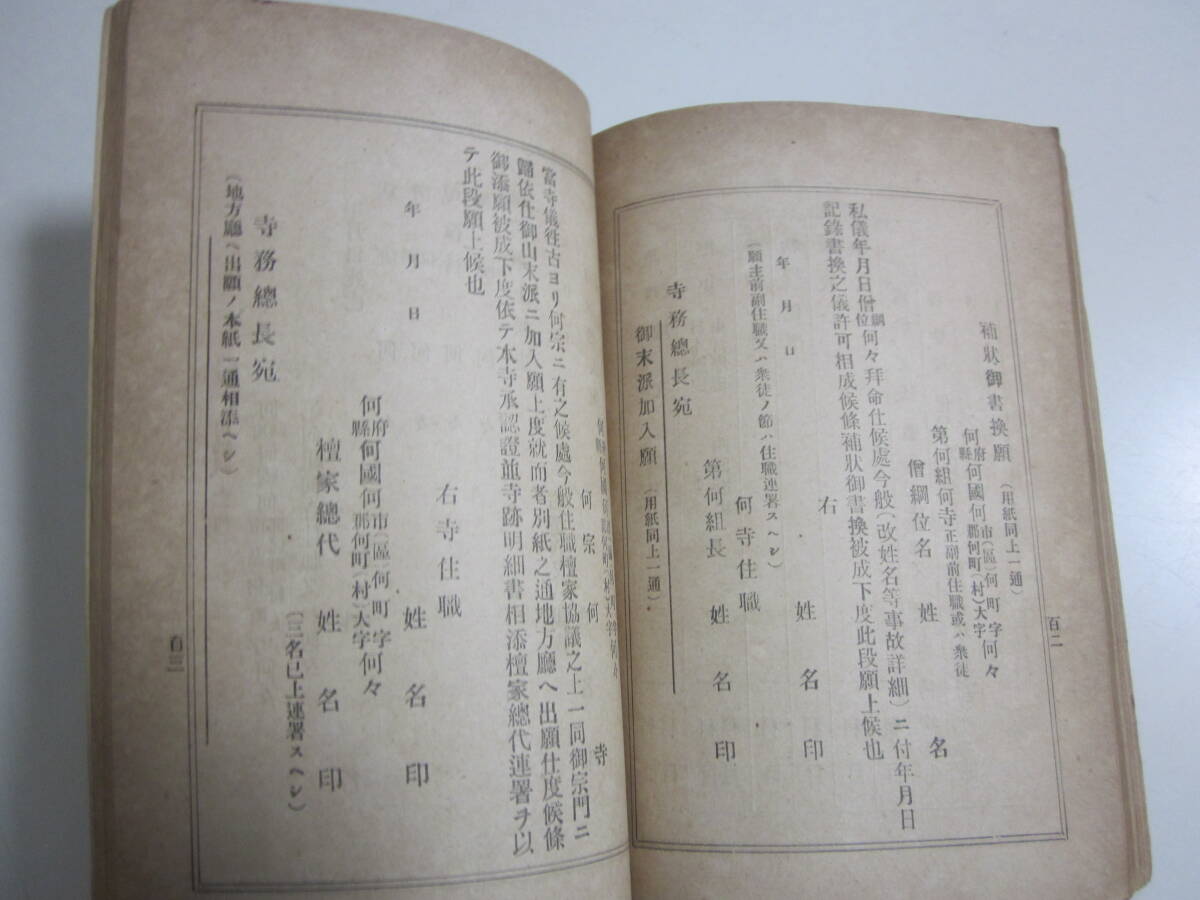 百二
補狀御書換願 (用紙同上一通)
何府縣何國何市(區)何町字何々
郡何町(村)大字
第何組何寺正副前住職或ハ衆徒
僧綱位名 姓 名
私儀年月日僧綱位何々拜命仕候處今般(改姓名等事故詳細)ニ付年月日
記錄書換之儀許可相成候條補狀御書換被成下度此段願上候也
右 姓 名 印
年 月 日
(願主前副住職又ハ衆徒ノ節ハ住職連署スヘシ)
何寺住職
第何組長 姓 名 印
寺務總長宛
御末派加入願 (用紙同上一通)
何 宗 何 寺
當寺儀從古ヨリ何宗ニ有之候處今般住職檀家協議之上一同御宗門ニ
歸依仕御山末派ニ加入願上度就而者別紙之通地方廳ヘ出願仕度候條
御添願被成下度依テ本寺承認證並寺跡明細書相添檀家總代連署ヲ以
テ此段願上候也
右寺住職
年 月 日 姓 名 印
何府縣何國何市(區)何町字何々
郡何町(村)大字
檀家總代 姓 名 印
(三名已上連署スヘシ)
寺務總長宛
(地方廳ヘ出願ノ本紙一通相添ヘシ)
百三